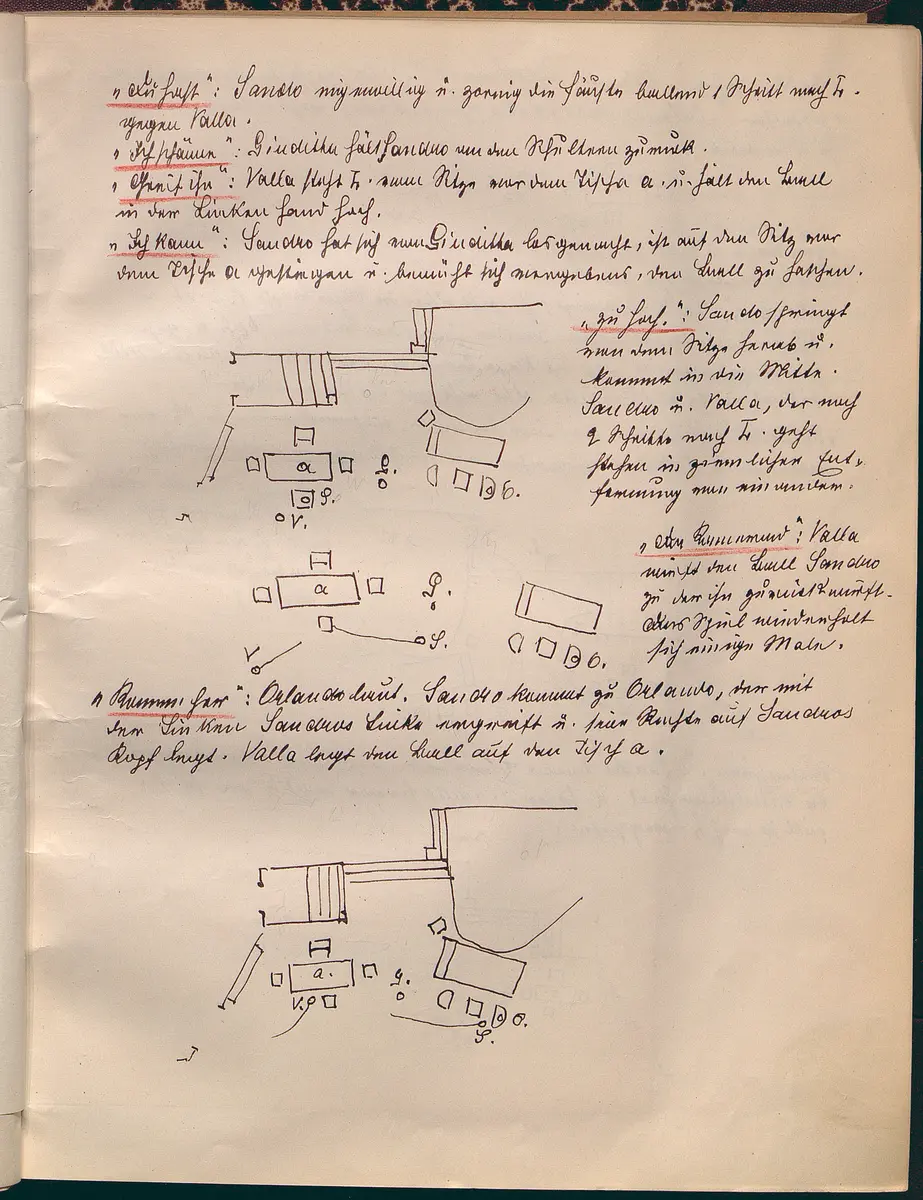 „Du hast“: Sandro eigenwillig u. zornig die Fäuste ballend 1 Schritt nach L.
gegen Valla.
„Ich schäume“: Giuditta hält Sandro an den Schultern zurück.
„Greif ihn“: Valla steht L. vom Sitze vor dem Tische a. u. hält den Ball
in der Linken Hand hoch.
„Ich kann“: Sandro hat sich von Giuditta losgemacht, ist auf den Sitz vor
dem Tische a gestiegen u. bemüht sich vergebens, den Ball zu haschen.
„zu hoch.“: Sando springt
von dem Sitze herab u.
kommt in die Mitte.
Sandro u. Valla, der noch
2 Schritte nach L. geht
stehen in ziemlicher Ent-
fernung von einander.
a
S.
V.
G.
O.
„Valla
wirft den Ball Sandro
zu der ihn zurückwirft.
Das Spiel wiederholt
sich einige Male.
a
G.
S.
V
O.
„Komm her“: Orlando laut. Sandro kommt zu Orlando, der mit
der Linken Sandros Linke ergreift u. seine Rechte auf Sandros
Kopf legt. Valla legt den Ball auf den Tisch a.
a.
V.
G.
O.
S.